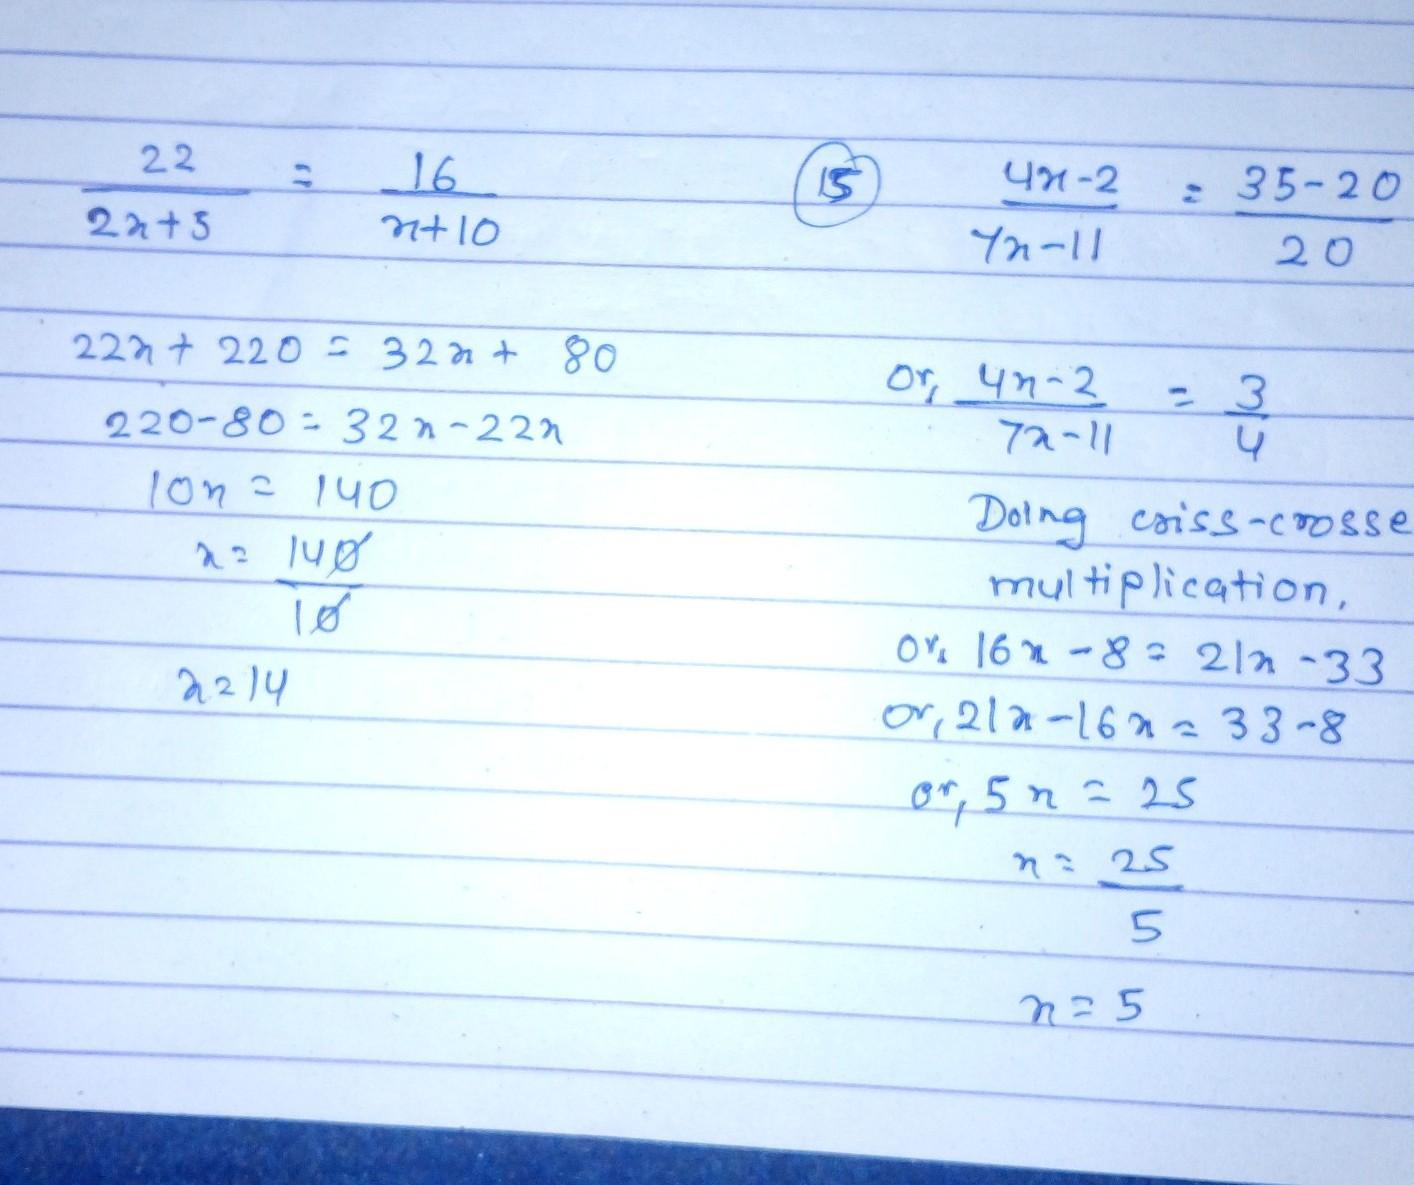 22 = 16
2x+5 x+10
22x + 220 = 32x + 80
220-80 = 32x-22x
10x = 140
x = 140
10
x=14
15 4x-2 = 35-20
7x-11 20
or, 4x-2 = 3
7x-11 4
Doing criss-crosse
multiplication,
or, 16x -8 = 21x -33
or, 21x-16x = 33-8
or, 5x = 25
x = 25
5
x = 5